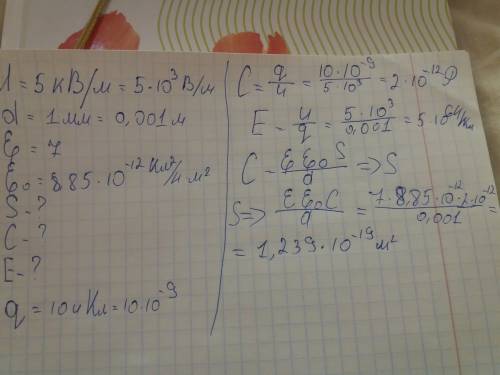 U = 5 кВ/м = 5·10³ В/м
d = 1 мм = 0,001 м
ε = 7
ε₀ = 8,85·10⁻¹² Кл²/н·м²
S - ?
C - ?
E - ?
q = 10 нКл = 10·10⁻⁹
C = q/u = 10·10⁻⁹/5·10³ = 2·10⁻¹² Ф
E - u/q = 5·10³/0,001 = 5·10⁶ н/Кл
C - εε₀S/d => S
S => εε₀C/d = 7·8,85·10⁻¹²·2·10⁻¹²/0,001 =
= 1,239·10⁻¹⁹ м²